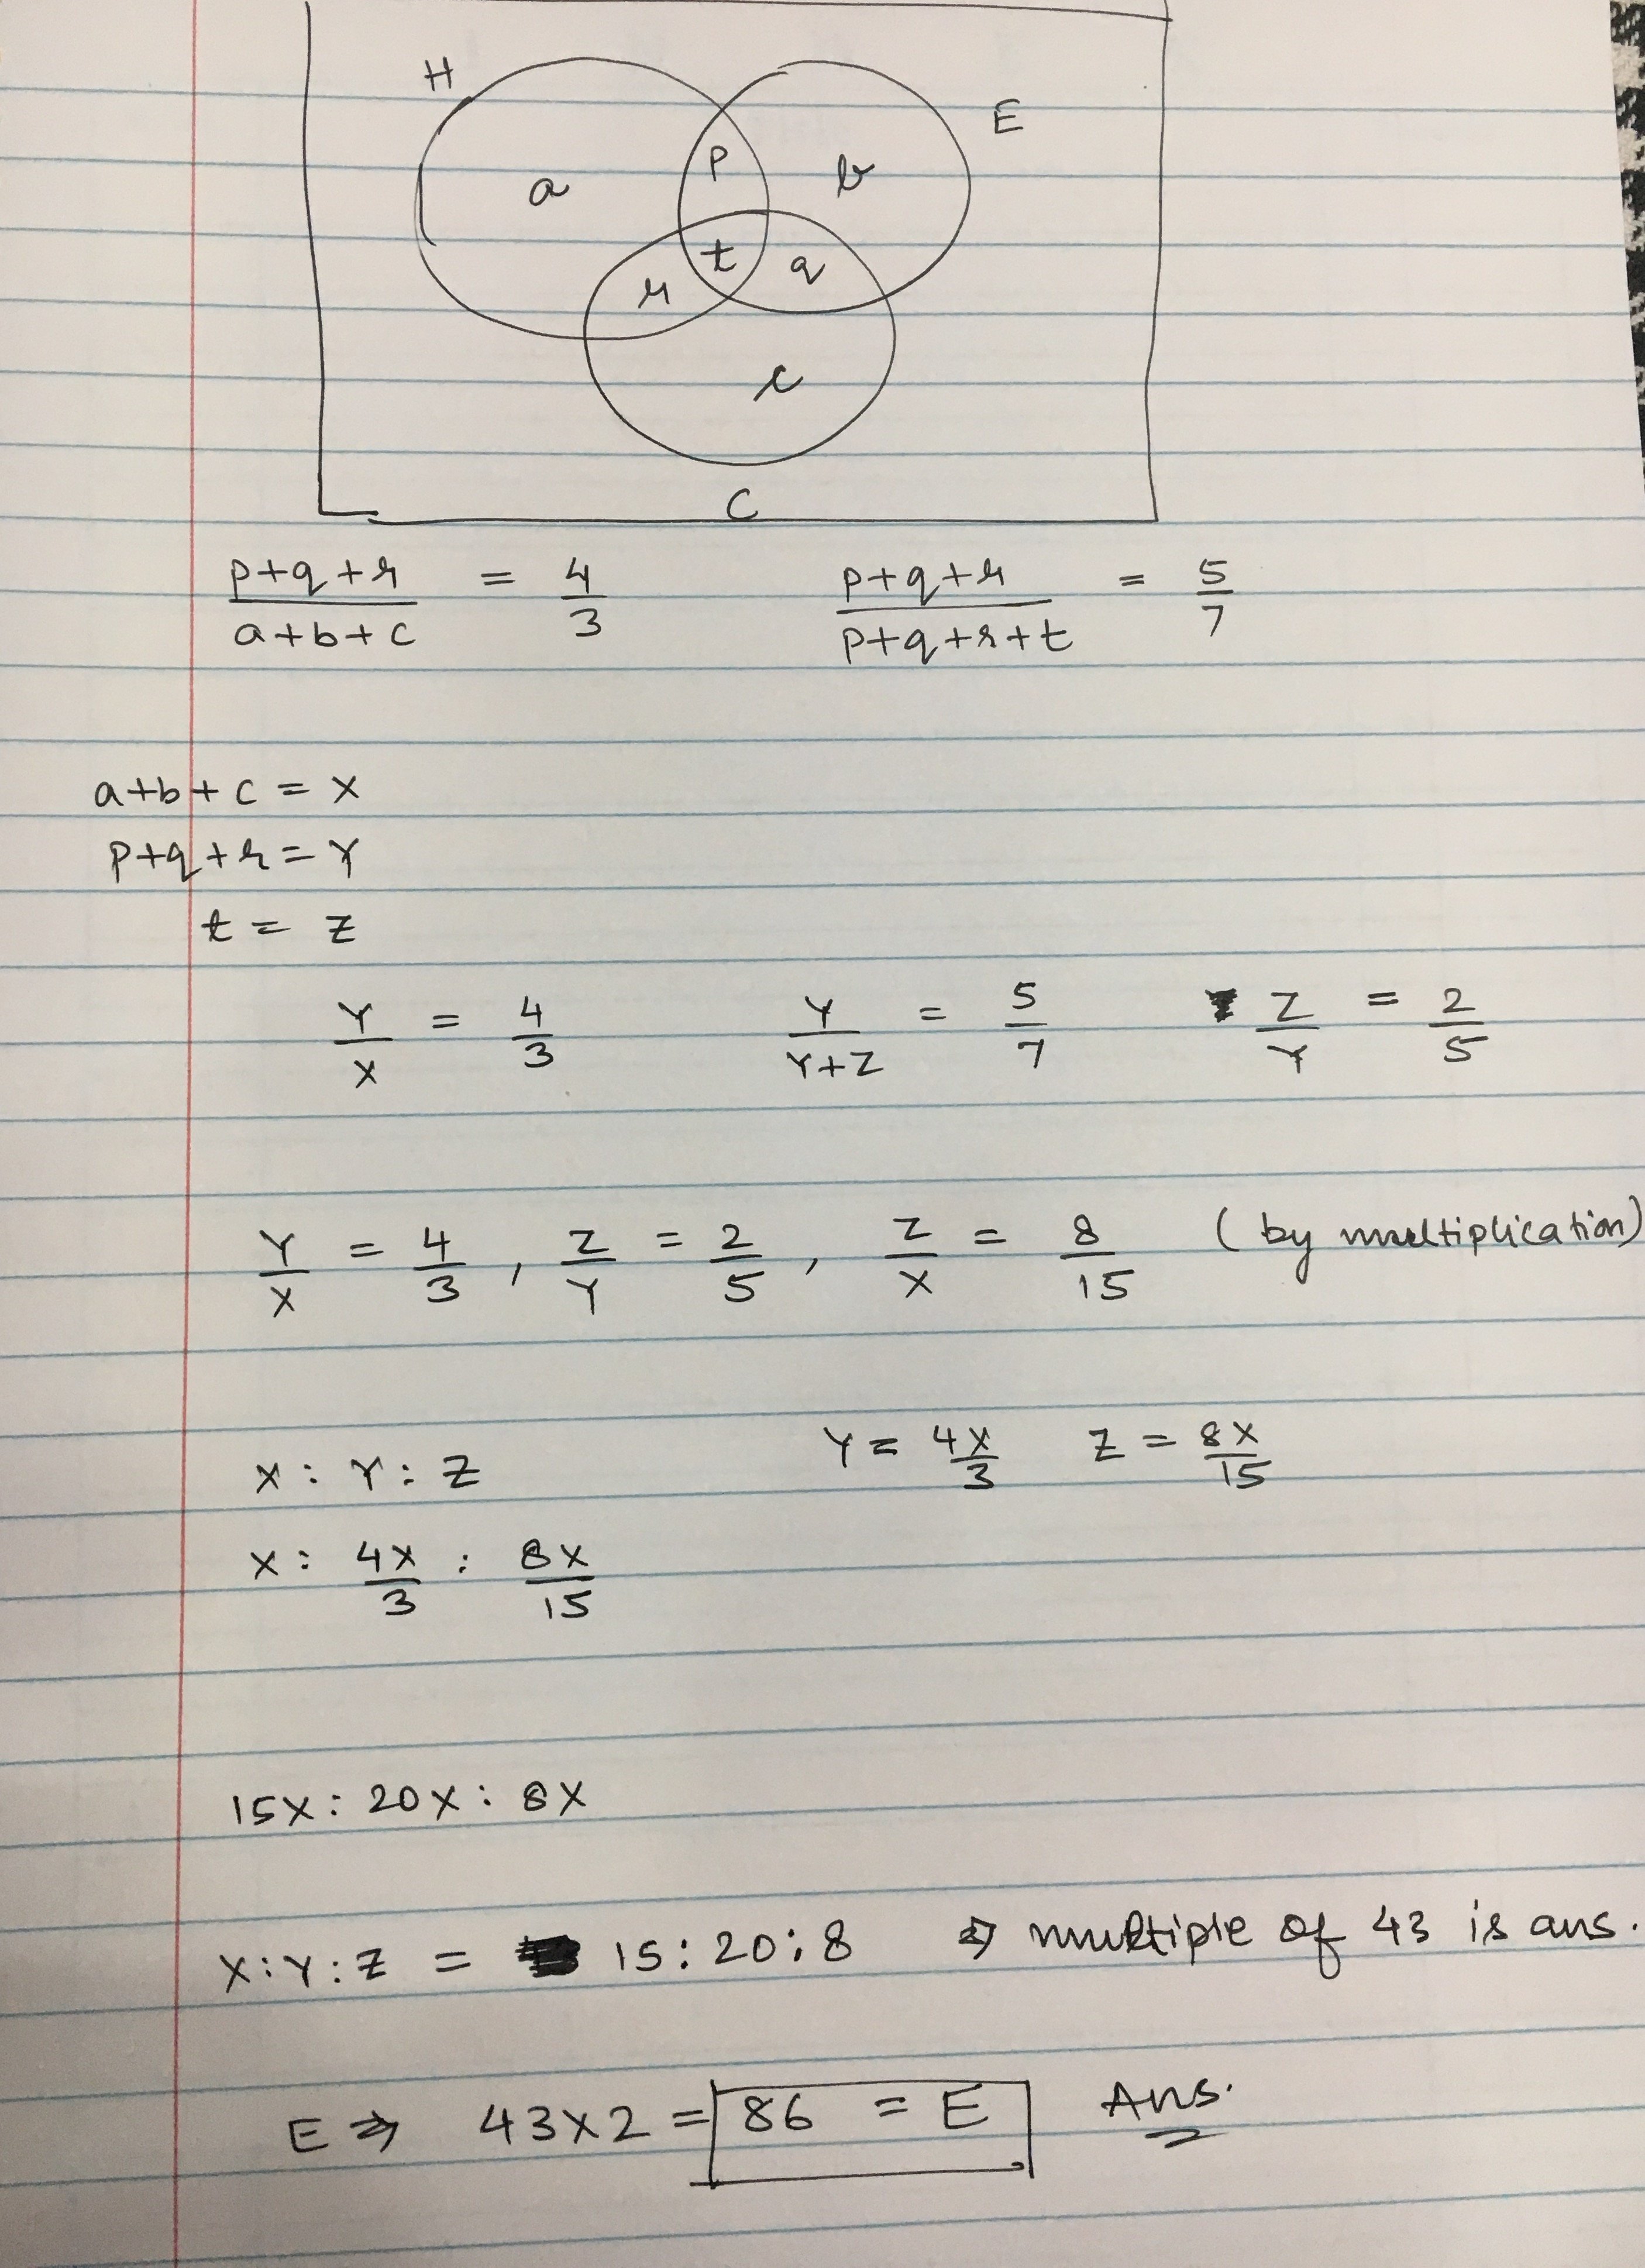 H
E
a
p
b
t
q
r
c
C
p+q+r / a+b+c = 4/3    p+q+r / p+q+r+t = 5/7
a+b+c = X
p+q+r = Y
t = Z
Y/X = 4/3    Y/Y+Z = 5/7    Z/Y = 2/5
Y/X = 4/3 , Z/Y = 2/5 , Z/X = 8/15 (by multiplication)
Y = 4X/3    Z = 8X/15
X : Y : Z
X : 4X/3 : 8X/15
15X : 20X : 8X
X:Y:Z = 15:20:8 ⇒ multiple of 43 is ans.
E ⇒ 43×2 = 86 = E Ans.